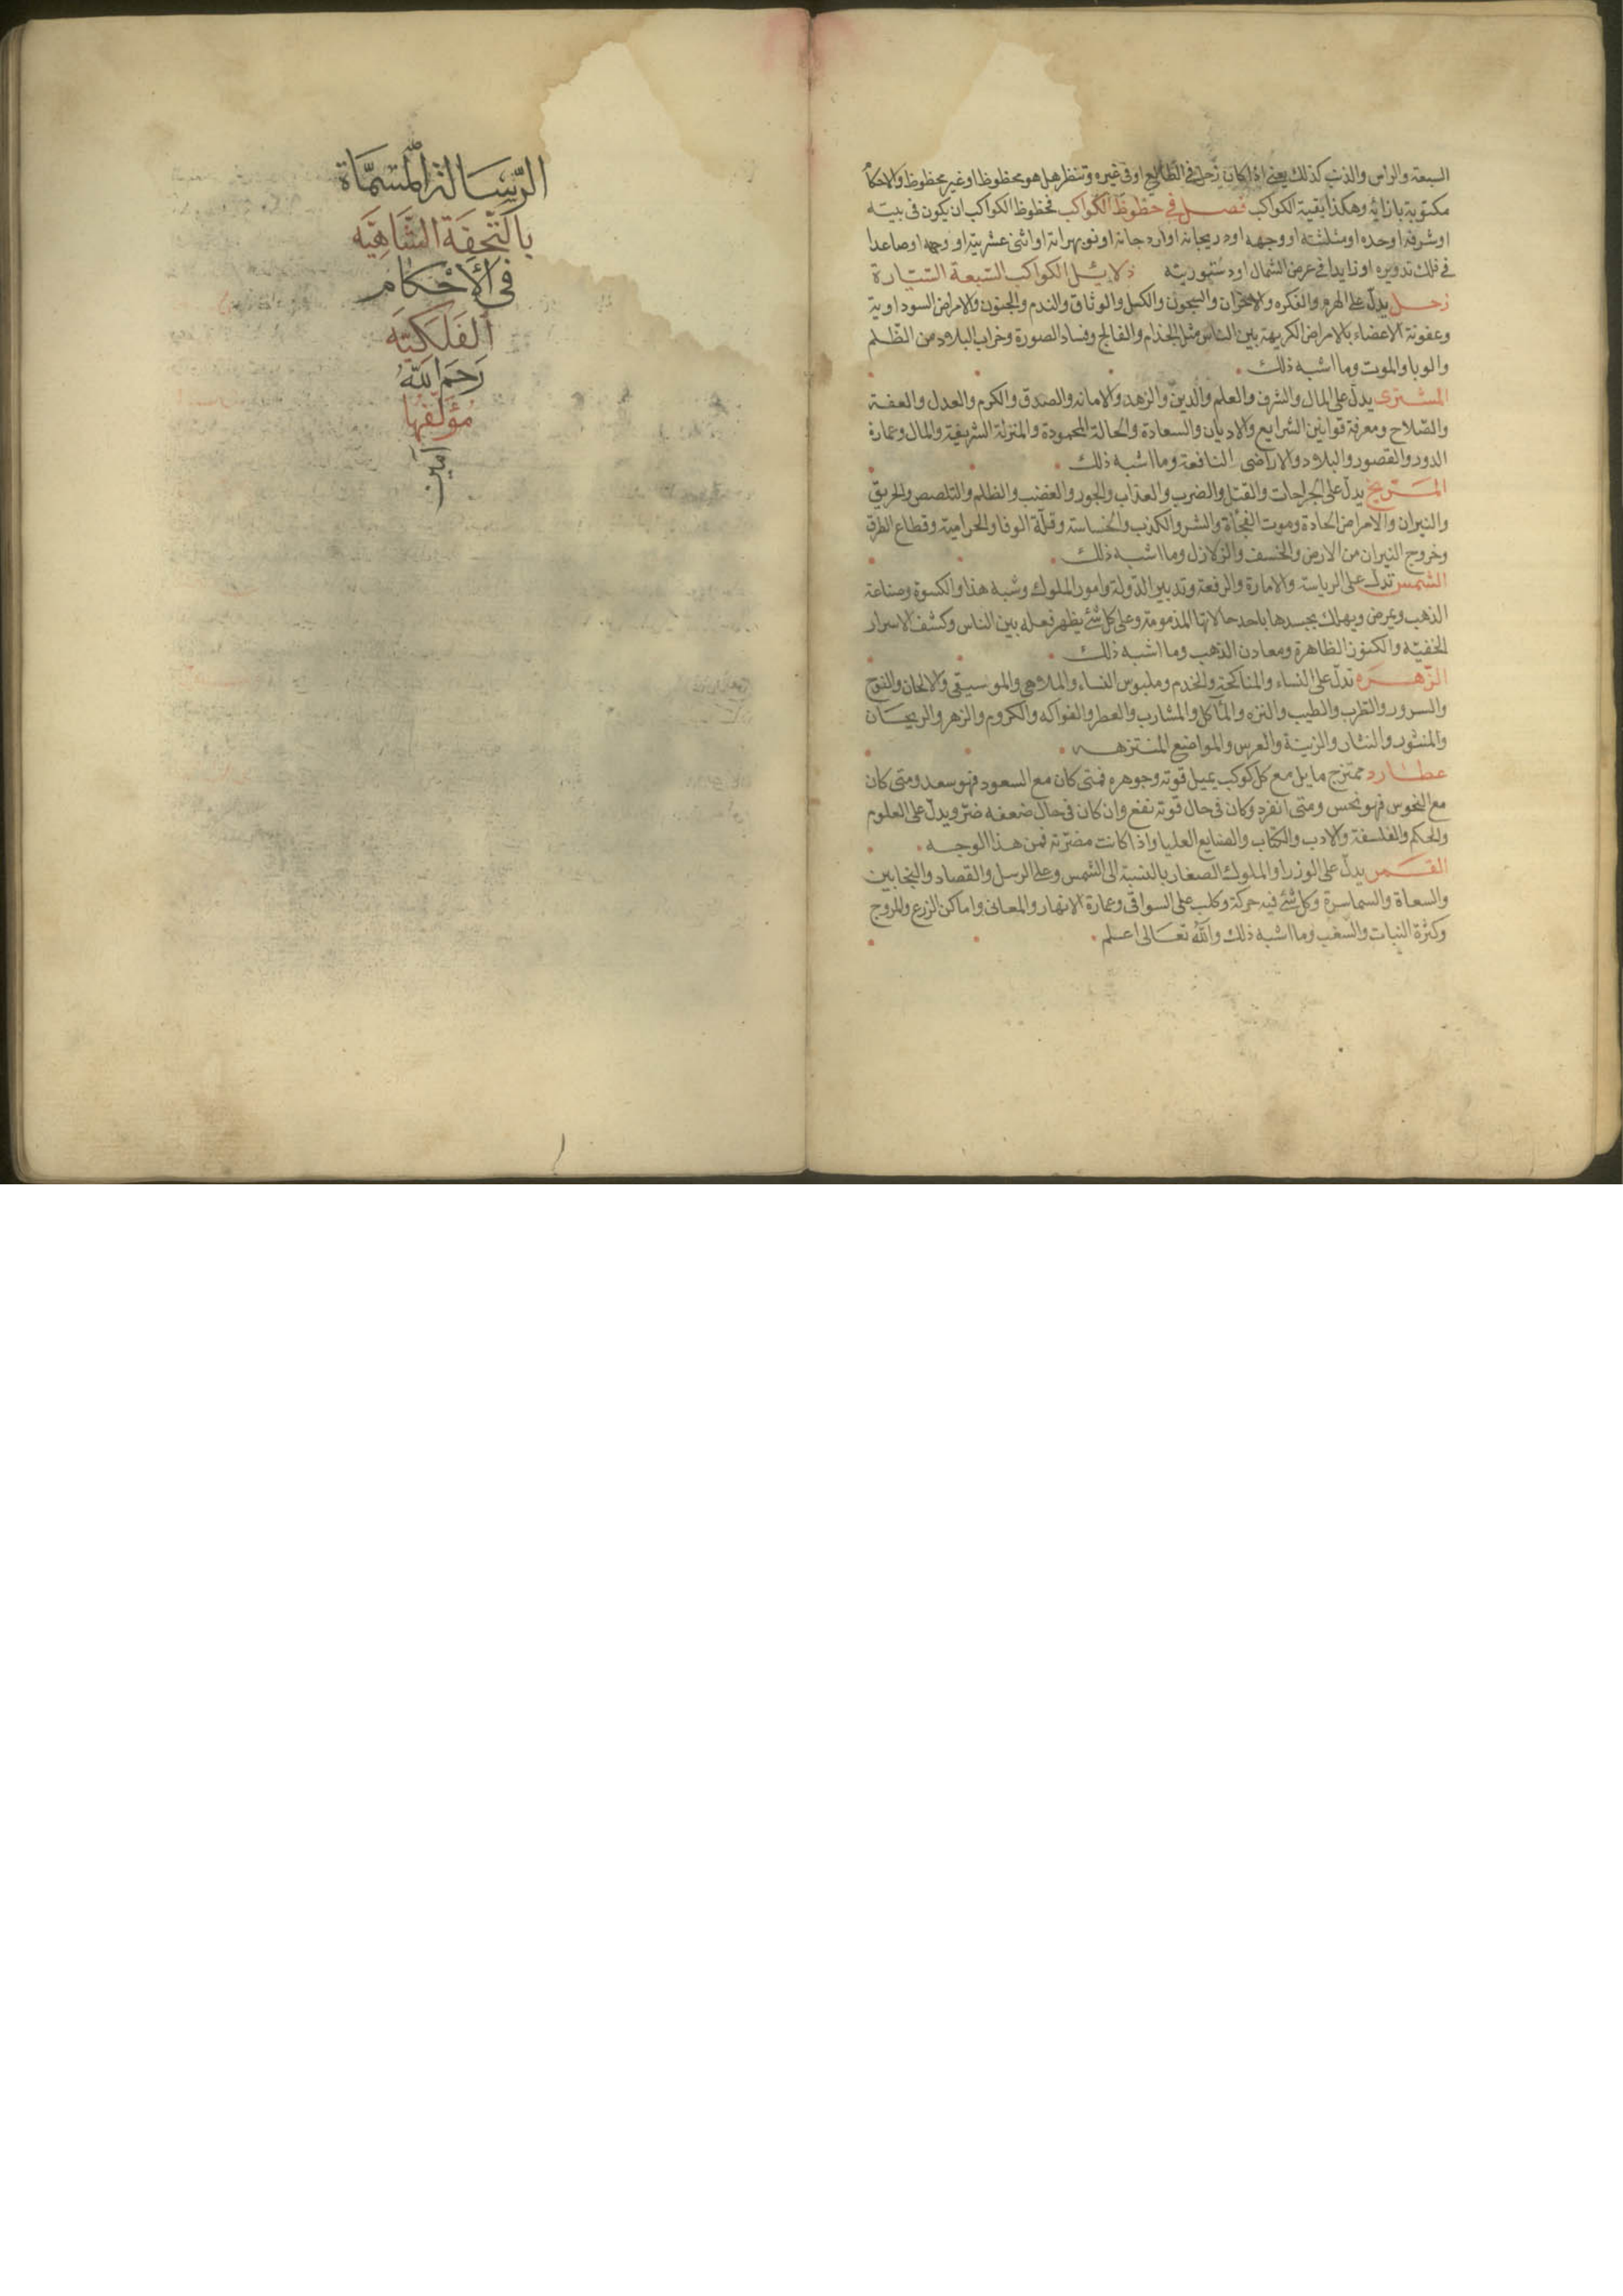 السبعة والراس والذنب كذلك يعنى اذا كان زحل فى الطالع او فى غيره وتنظر هل هو محظوظا او غير محظوظ والاحكام
مكتوبة بازائه وهكذا بقية الكواكب فصل فى حظوظ الكواكب فحظوظ الكواكب ان يكون فى بيته
او شرفه او حده او مثلثته او وجهه او دريجانه او ارد جانه او نوبهراته او اثنى عشريته او وجهه او صاعدا
فى فلك تدويره او زايدا فى عرض الشمال او دستوريته دلايل الكواكب السبعة السيارة
زحل يدل على الهرم والفكره والاحزان والسجون والكبل والوثاق والندم والجنون والامراض السوداوية
وعفونة الاعضاء بالامراض الكريهة بين الناس مثل الجذام والفالج وفساد الصورة وخراب البلاد من الظلم
والوبا والموت وما اشبه ذلك
المشترى يدل على المال والشرف والعلم والدين والزهد والامانه والصدق والكرم والعدل والعفة
والصلاح ومعرفة قوانين الشرايع والاديان والسعادة والحالة المحمودة والمنزلة الشريفة والمال وعمارة
الدور والقصور والبلاد والاراضى النافعة وما اشبه ذلك
المريخ يدل على الجراحات والقتل والضرب والعذاب والجور والغضب والظلم والتلصص والحريق
والنيران والامراض الحادة وموت الفجأة والشر والكذب والخساسة وقلة الوفا والحرامية وقطاع الطرق
وخروج النيران من الارض والخسف والزلازل وما اشبه ذلك
الشمس تدل على الرياسة والامارة والرفعة وتدبير الدولة وامور الملوك وشبه هذا والكسوة وصناعة
الذهب ويمرض ويهلك بجسدها باحد حالاتها المذمومة وعلى كل شئ يظهر فعله بين الناس وكشف الاسرار
الخفيه والكنوز الظاهرة ومعادن الذهب وما اشبه ذلك
الزهرة تدل على النساء والمناكحة والخدم وملبوس النساء والملاهى والموسيقى والالحان والنوح
والسرور والطرب والطيب والنزه والمأكل والمشارب والعطر والفواكه والكروم والزهر والريحان
والمنثور والنثار والزينة والعرس والمواضع المنتزهه
عطارد ممتزج مايل مع كل كوكب يميل قوته وجوهره فمتى كان مع السعود فهو سعد ومتى كان
مع النحوس فهو نحس ومتى انفرد وكان فى حال قوته نفع وان كان فى حال ضعفه ضر ويدل على العلوم
والحكم والفلسفة والادب والكتاب والصنايع العليا واذا كانت مضرته فمن هذا الوجه
القمر يدل على الوزرا والملوك الصغار بالنسبة الى الشمس وعلى الرسل والقصاد والنجابين
والسعاة والسماسرة وكل شئ فيه حركة وكلب على السواقى وعمارة الانهار والمعانى واماكن الزرع والمروج
وكثرة النبات والسغب وما اشبه ذلك والله تعالى اعلم
الرسالة المسماة
بالتحفة الشاهيه
فى الاحكام
الفلكيه
رحم الله
مؤلفها
امين